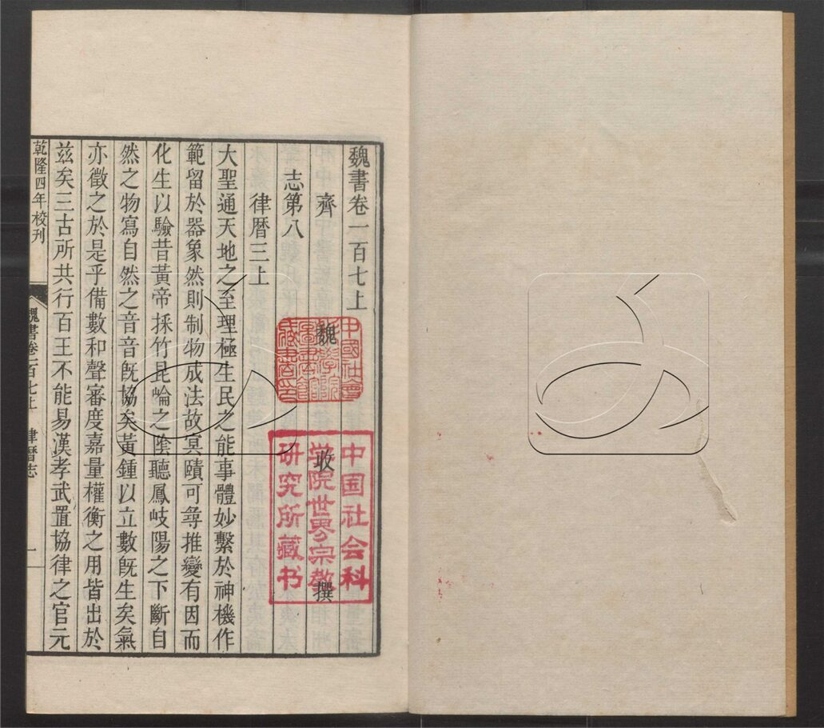 魏書卷一百七上
齊 魏 收 撰
志第八
律暦三上
大聖通天地之至理極生民之能事體妙繫於神機作
範留於器象然則制物成法故冥賾可尋推變有因而
化生以驗昔黃帝採竹昆崘之陰聽鳳岐陽之下斷自
然之物寫自然之音音旣協矣黃鍾以立數旣生矣氣
亦徵之於是乎備數和聲審度嘉量權衡之用皆出於
兹矣三古所共行百王不能易漢孝武置協律之官元
乾隆四年校刊
魏書卷一百七上 律暦志 一
中國社會
科學院
圖書館
藏書印
中国社会科
学院世界宗教
研究所藏书